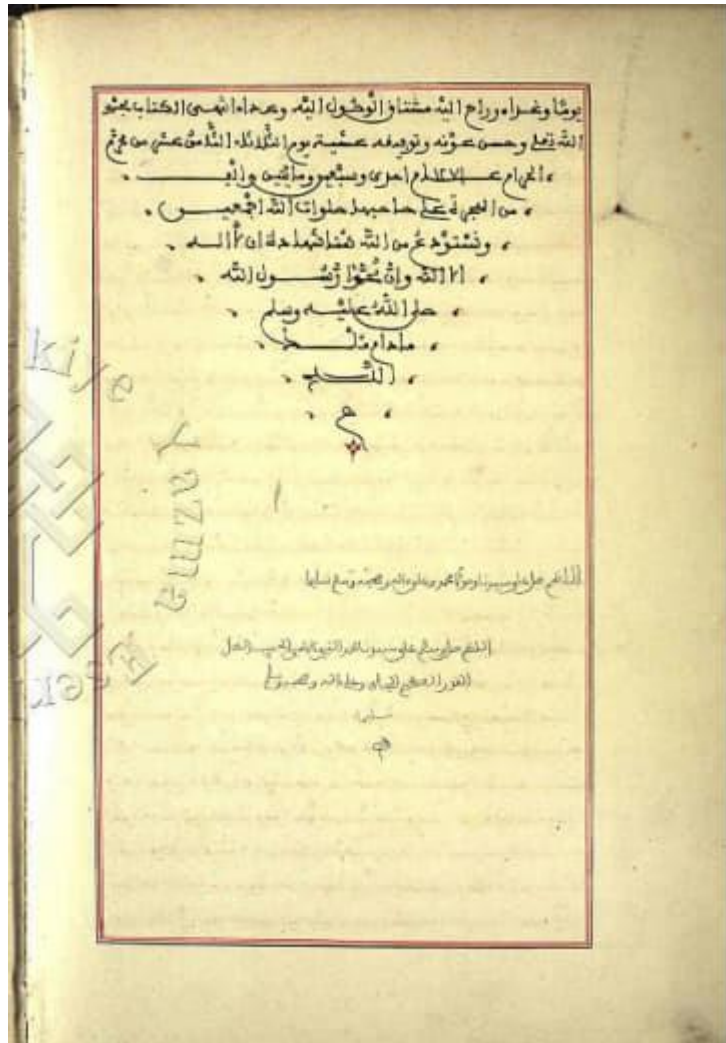 يومًا وغداه وراح اليه مشتاق الوصول اليه وعداه انتهى الكتاب بحمد
الله تعلى وحسن عونه وتوفيقه عشية يوم الثلاثاء الثامن عشر من محرم
الحرام عـ١٢٧١ـام احدى وسبعين ومائتين والف
من الهجرة على صاحبها صلوات الله اجمعين
ونستودع من الله هنا شهادة ان لا اله
الا الله وان محمدا رسول الله
صلى الله عليه وسلم
ما دام
القلم
م
اللهم صل على سيدنا ومولانا محمد وعلى ءاله وصحبه وسلم تسليما
اللهم صل وسلم على سيدنا محمد النبي الامي الحبيب العالي
القدر العظيم الجاه وعلى ءاله وصحبه وسلم
تسليما
Türkiye Yazma Eser